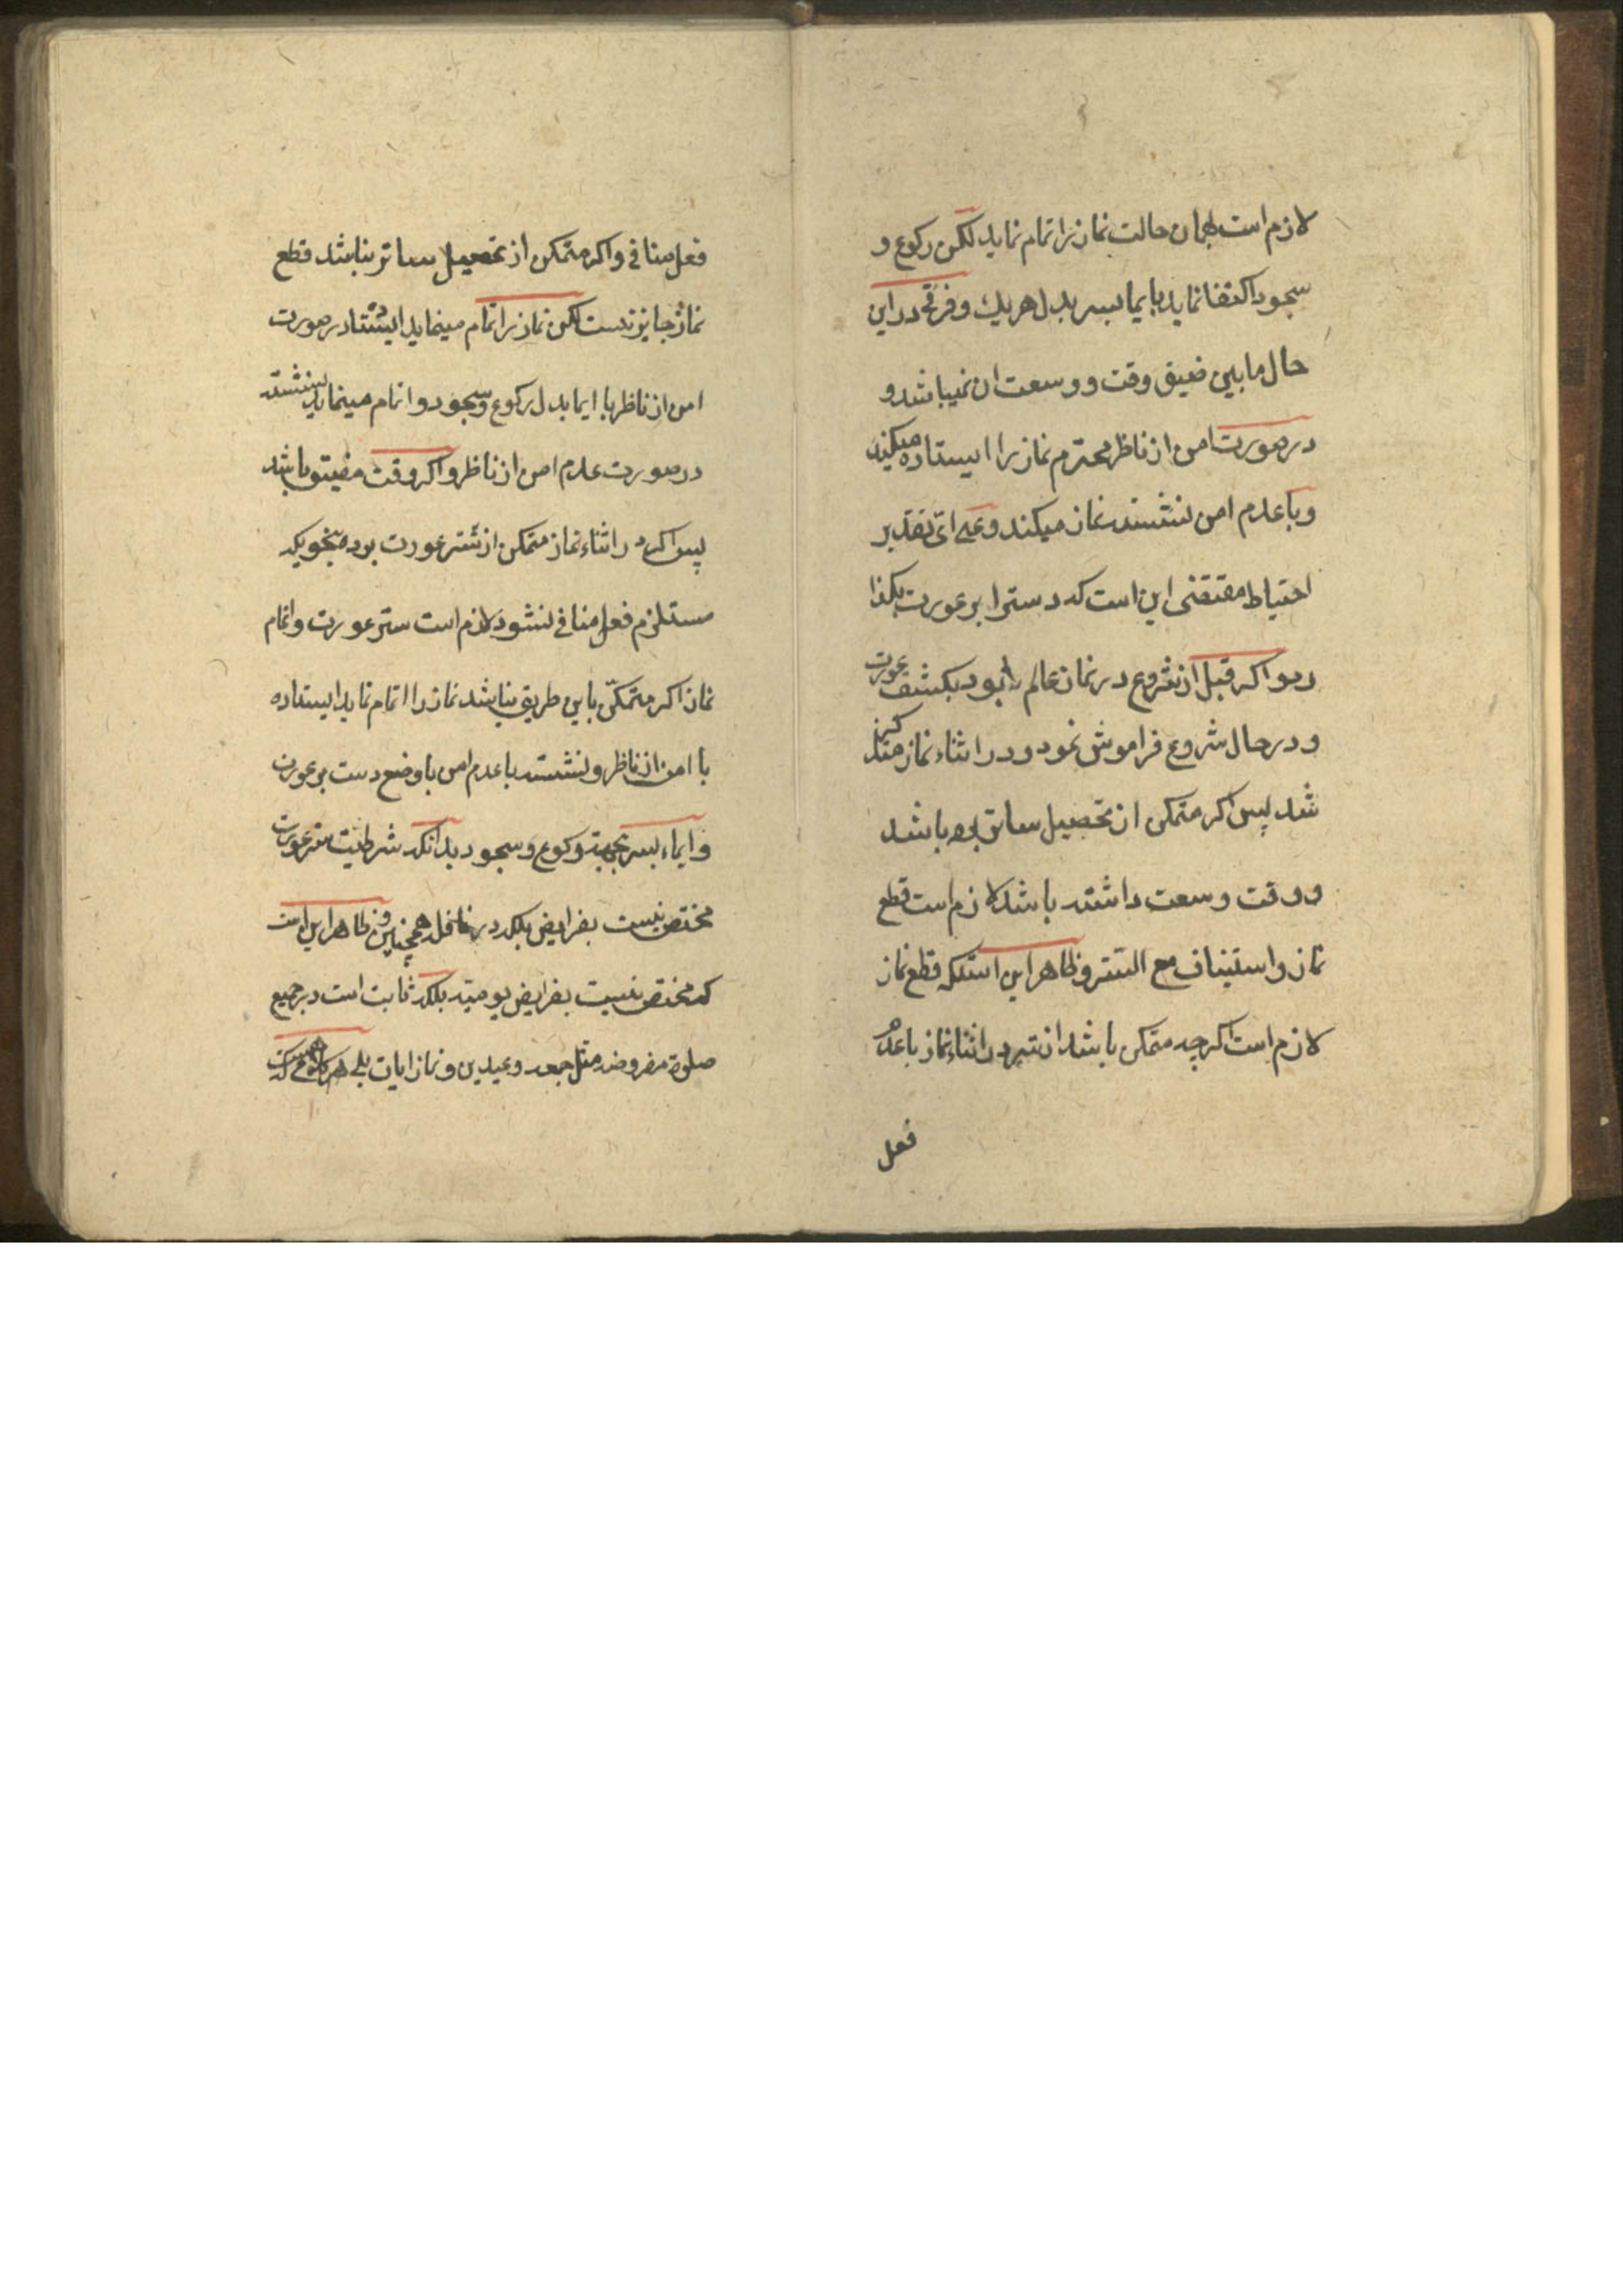 لازم است بهمان حالت نماز را تمام نماید لکن رکوع و
سجود اکتفا نماید بایما بسر بدل هر یك و فرقی در این
حال ما بین ضیق وقت و وسعت ان نمیباشد و
در صورت امن از ناظر محترم نماز را ایستاده میکند
و با عدم امن نشسته نماز میکند و علی ای تقدیر
احتیاط مقتضی این است که دست را بر عورت بکذا
رد و اکر قبل از شروع در نماز عالم بود بکشف عورت
و در حال شروع فراموش نمود و در اثناء نماز متذکر
شد پس اکر متمکن از تحصیل ساتر بوده باشد
و وقت وسعت داشته باشد لازم است قطع
نماز و استیناف مع التستر و ظاهر این استکه قطع نماز
لازم است اکر چه متمکن باشد از ستر در اثناء نماز باعدم
فعل
فعل منافی و اکر متمکن از تحصیل ساتر نباشد قطع
نماز جایز نیست لکن نماز را تمام مینماید ایستاده در صورت
امن از ناظر با ایما بدل رکوع و سجود و اتمام مینماید نشسته
در صورت عدم امن از ناظر و اکر وقت مضیق باشد
پس اکر در اثناء نماز متمکن از ستر عورت بود بنحویکه
مستلزم فعل منافی نشود لازم است ستر عورت و اتمام
نماز اکر متمکن باین طریق نباشد نماز را اتمام نماید ایستاده
با امن از ناظر و نشسته باعدم امن با وضع دست بر عورت
و ایماء بسر بجهة رکوع و سجود بدانکه شرطیت ستر عورت
مختص نیست بفرایض بلکه در نوافل همچنین و ظاهر این است
که مختص نیست بفرایض یومیه بلکه ثابت است در جمیع
صلوة مفروضه مثل جمعه و عیدین و نماز ایات بلی